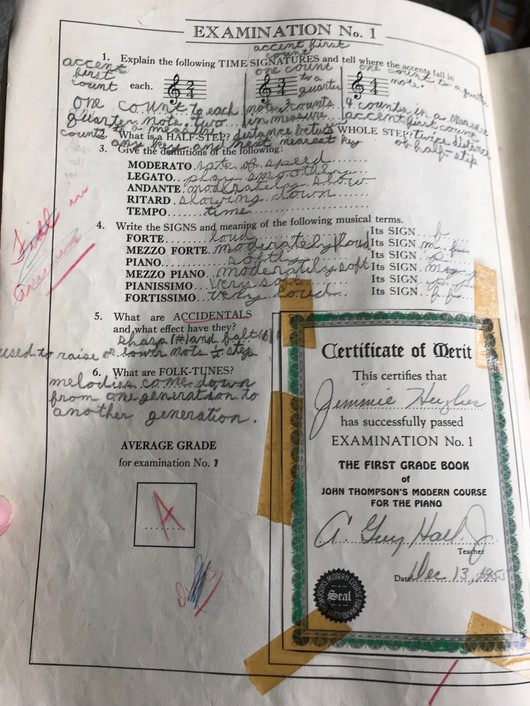 EXAMINATION No. 1
accent first
count
1. Explain the following TIME SIGNATURES and tell where the accents fall in
accent
first
count
each.
one count
to a
quarter
one count to a quarter
note.
2 4
3 4
4 4
one count to each note 3 counts 4 counts in a measure
quarter note. two in measure. accent first count
counts to a measure
2. What is a HALF-STEP? distance between WHOLE STEP? twice distance
any key and next nearest key of half-step
3. Give the definitions of the following:
MODERATO rate of speed
LEGATO play smoothly
ANDANTE moderately slow
RITARD slowing down
TEMPO time
4. Write the SIGNS and meaning of the following musical terms.
FORTE loud Its SIGN f
MEZZO FORTE moderately loud Its SIGN
PIANO softly Its SIGN p
MEZZO PIANO moderately soft Its SIGN
PIANISSIMO very soft Its SIGN
FORTISSIMO very loud Its SIGN
5. What are ACCIDENTALS
and what effect have they?
sharp (#) and
used to raise or note ½ step
6. What are FOLK-TUNES?
melodies come down
from one generation to
another generation.
AVERAGE GRADE
for examination No. 1
A
Certificate of Merit
This certifies that
Jimmie
has successfully passed
EXAMINATION No. 1
THE FIRST GRADE BOOK
of
JOHN THOMPSON'S MODERN COURSE
FOR THE PIANO
A. Guy
Teacher
Date Dec 13,
Seal